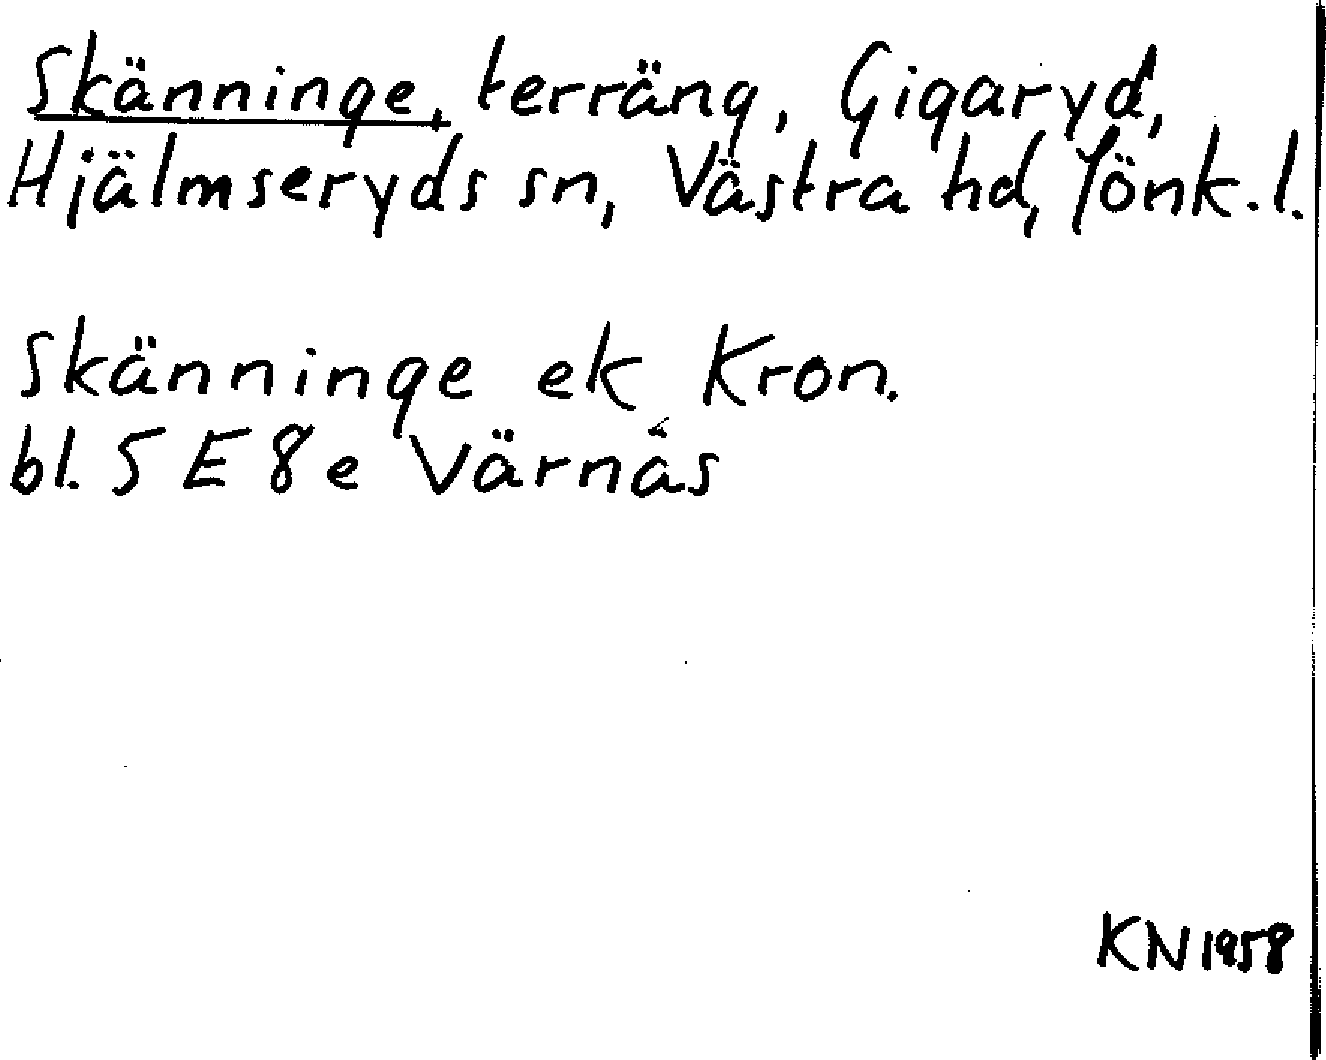 Skänninge, terräng, Gigaryd,
Hjälmseryds sn, Västra hd, Jönk. l.
Skänninge ek Kron.
bl. 5 E 8 e Värnäs
KN 1958